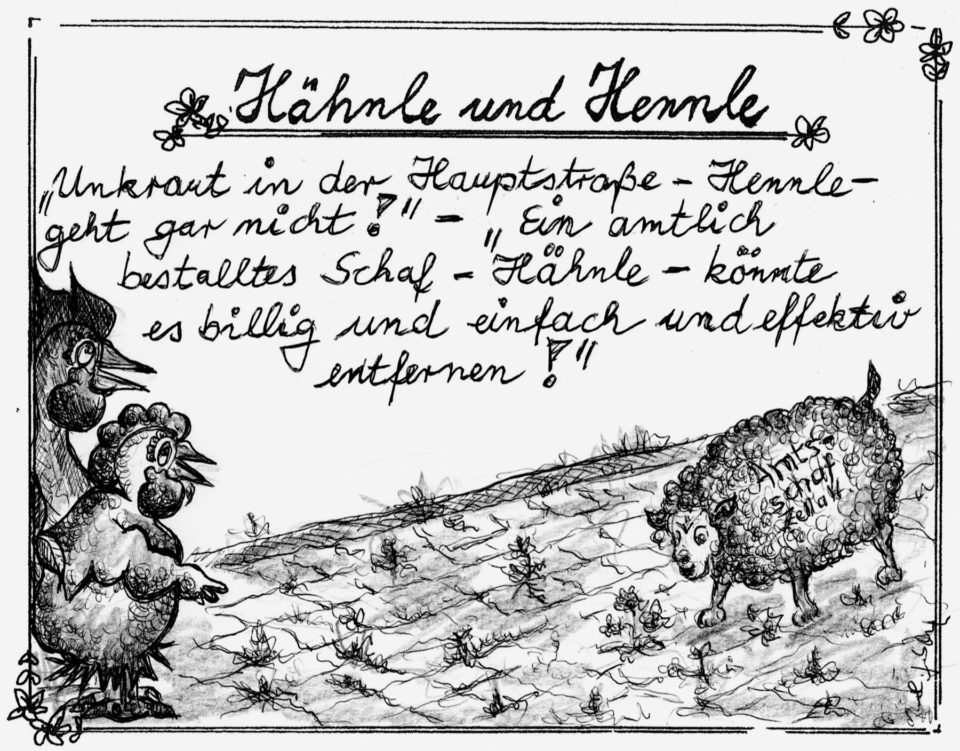 Hähnle und Hennle
„Unkraut in der Hauptstraße – Hennle –
geht gar nicht!" – „Ein amtlich
bestalltes Schaf – Hähnle – könnte
es billig und einfach und effektiv
entfernen!"
Amts-
schaf